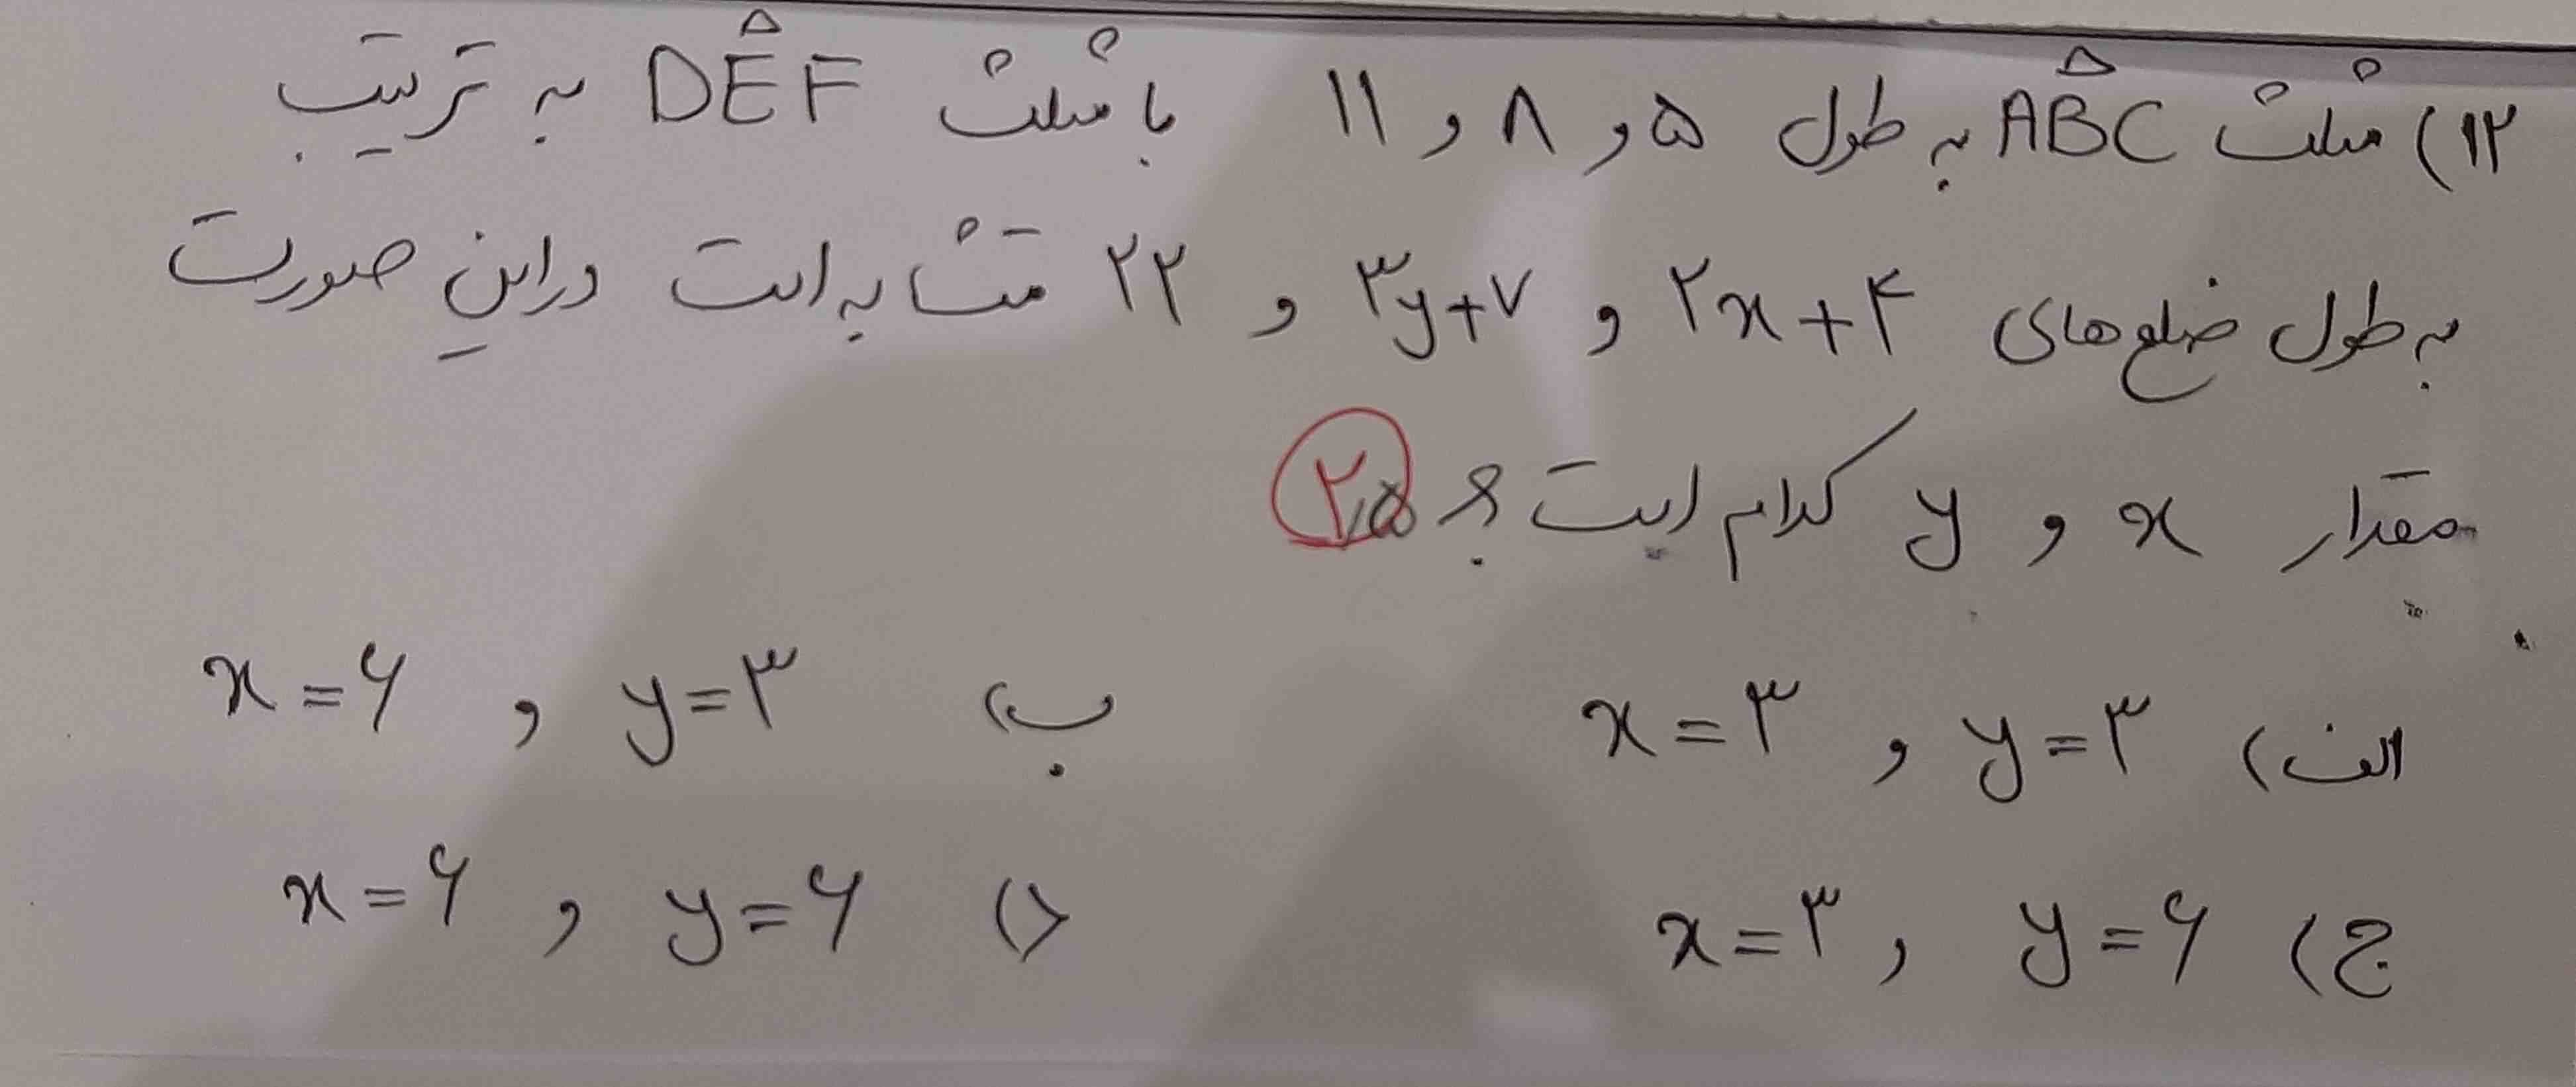 ۱۲) مثلث ABC به طول ۵ و ۸ و ۱۱ با مثلث DEF به ترتیب
به طول ضلع های ۲x+۴ و ۳y+۷ و ۲۲ متشابه است در این صورت
مقدار x و y کدام است؟ ۲٫۵
الف) x=۳ , y=۳ ب) x=۶ , y=۳
ج) x=۳ , y=۶ د) x=۶ , y=۶